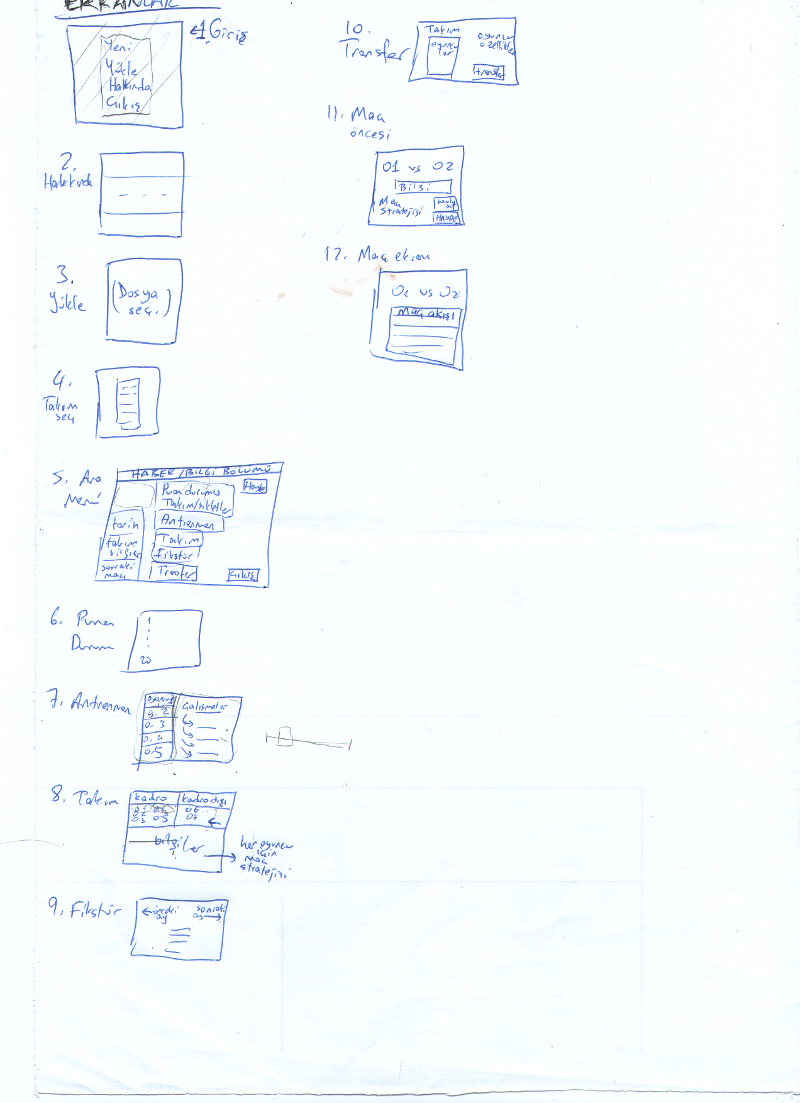 EKRANLAR
1 Giriş
Yeni
Yükle
Hakkında
Çıkış
2.
Hakkında
3.
Yükle
(Dosya
seç.)
4.
Takım
seç
5. Ara
Menü
HABER/BİLGİ BÖLÜMÜ
Puan durumu
Takım/
Antrenman
Takım
Fikstür
Transfer
Çıkış
tarih
takım
bilgileri
sonraki
maçı
6. Puan
Durum
1
20
7. Antrenman
Çalışmalar
8. Takım
kadro
kadro dışı
bilgiler
her oyuncu
için
maç
stratejisi
9. Fikstür
önceki
ay
sonraki
ay
10.
Transfer
Takım
oyuncu
lar
oyuncu
özellikleri
transfer
11. Maç
öncesi
O1 vs O2
Bilgi
Maç
stratejisi
12. Maç ekranı
O1 vs O2
Maç akışı